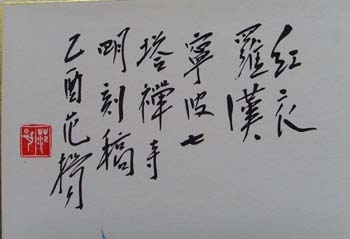 红衣
羅漢
寧波七
塔禪寺
明刻稿
乙酉范